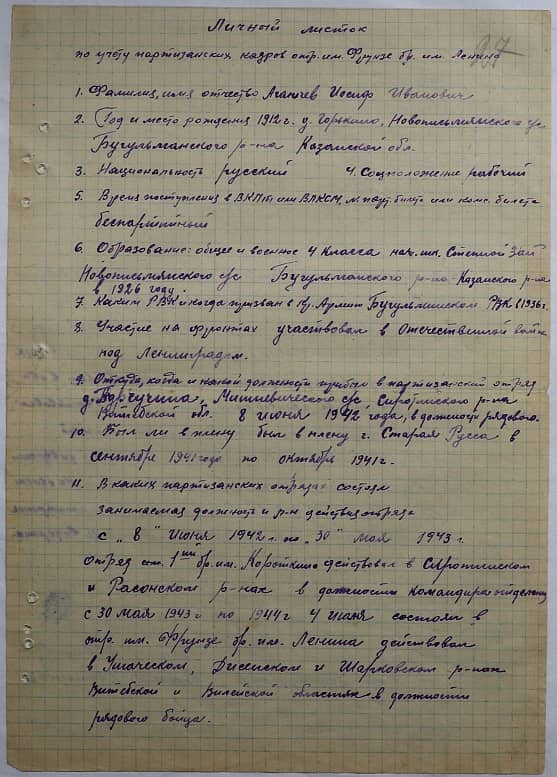 Личный листок
по учету партизанских кадров отр. им. Фрунзе бр. им. Ленина
37
1. Фамилия, имя отчество Агапчев Иосиф Иванович
2. Год и место рождения 1912 г. д. Горькино, Новописьмянского с/с
Бугульманского р-на Казанской обл.
3. Национальность русский 4. Соцположение рабочий
5. Время поступления в ВКПб или ВЛКСМ, № парт. билета или комс. билета
беспартийный
6. Образование: общее и военное 4 класса нач. шк. Степной Зай
Новописьмянского с/с Бугульманского р-на Казанского р-на
в 1926 году.
7. Каким РВК и когда призван в Кр. Армию Бугульминском РВК в 1936 г.
8. Участие на фронтах участвовал в Отечественной войне
под Ленинградом.
9. Откуда, когда и какой должности прибыл в партизанский отряд
д. Мишневического с/с, Сиротинского р-на
Витебской обл. 8 июня 1942 года, в должности рядового.
10. Был ли в плену был в плену г. Старая Русса в
сентябре 1941 года по октябрь 1941 г.
11. В каких партизанских отрядах состоял
занимаемая должность и р-н действия отряда
с „8" июня 1942 г. по „30" мая 1943 г.
отряд 1ый бр. им. Короткина действовал в Сиротинском
и Расонском р-нах в должности командира отделения
с 30 мая 1943 г по 1944 г 4 июня состоял в
отр. им. Фрунзе бр. им. Ленина действовал
в Ушачском, Дисенском и Шарковском р-нах
Витебской и Вилейской областях в должности
рядового бойца.